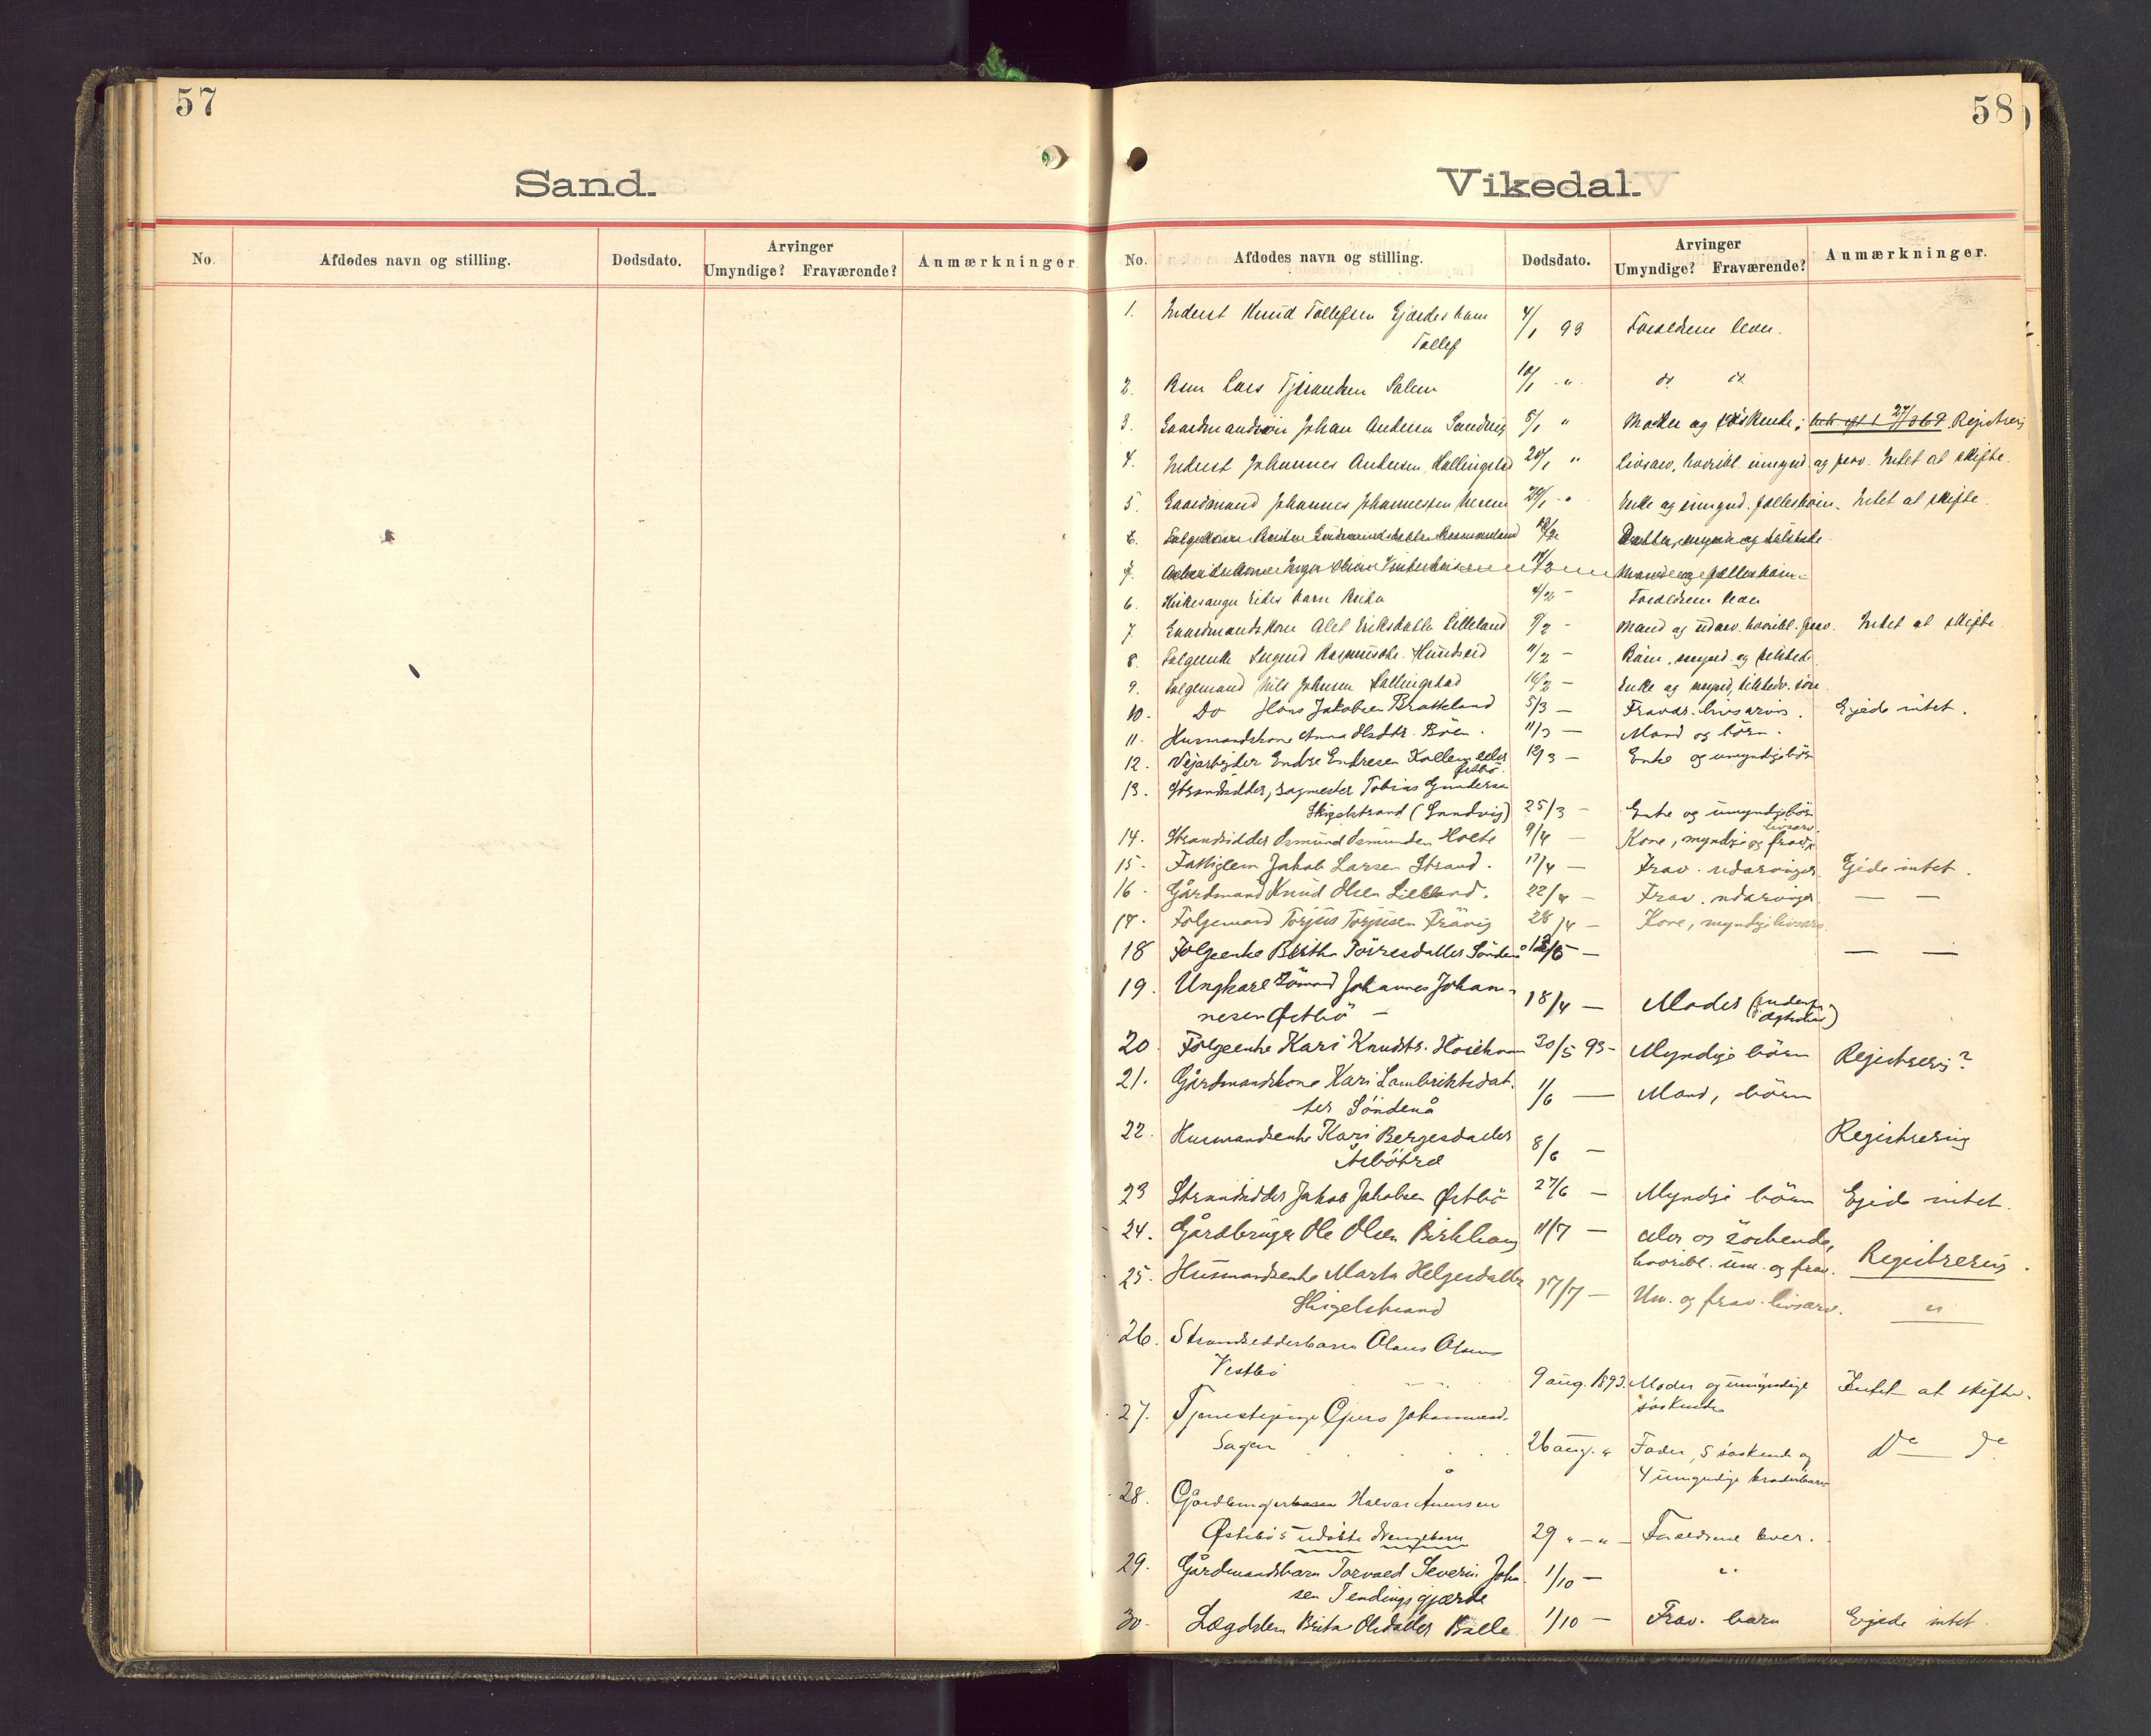 57
Sand.
No. Afdødes navn og stilling. Dødsdato. Arvinger Umyndige? Fraværende? Anmærkninger
58
Vikedal.
No. Afdødes navn og stilling. Dødsdato. Arvinger Umyndige? Fraværende? Anmærkninger.
1. Inderst Knud Tollefsen 4/1 93 Forældrene lever.
Tollef
2. Lars 10/1 " do do
3. Johan Andersen Sandvig 5/1 " Moder og søskende; Registrering
4. Inderst Johannes Andersen Hallingstad 20/1 " Livsarv. hvoribl. umynd. og frav. Intet at skifte.
5. Gaardmand Johannes Johannessen 29/1 " Enke og umynd. fællesbörn. Intet at skifte
6. Datter, myndig og tilstede
7. Mand og fællesbörn
6. Kirkesanger Eides barn 4/2 - Forældrene lever
7. Gaardmandskone Alet Eriksdatter Lilleland 9/2 - Mand og udarv. hvoribl. frav. Intet at skifte.
8. Folgeenke Rasmusdtr. Hundseid 11/2 - Börn, mynd. og tilstede.
9. Folgemand Nils Johnsen Hallingstad 16/2 - Enke og mynd, tilstedv. sön.
10. Do Hans Jakobsen Bratteland 5/3 - Fravær. livsarving. Ejede intet.
11. Husmandskone Anna Olsdtr. Böen. 11/3 - Mand og börn.
12. Vejarbejder Endre Endresen 12/3 - Enke og umyndige börn
Østbö.
13. Strandsidder, sagmester Tobias Gundersen
Skigelstrand (Sandvig) 25/3 - Enke og umyndige börn
14. Strandsidder Osmund Osmundsen Holte 9/4 - Kone, myndige og frav. livsarv.
15. Fattiglem Jakob Larsen Strand. 17/4 - Frav. udarvinger Ejede intet.
16. Gårdmand Knud Olsen Lilleland. 22/4 - Frav. udarvinger — —
17. Folgemand Torjus Torjusen Frövig 28/4 - Kone, myndige livsarv.
18 Folgeenke Britha Törresdatter Söndenå /5 - — —
19. Ungkarl Sömand Johannes Johan-
nesen Østbö - 18/4 - Moder
20. Folgeenke Kari Knudstr. 30/5 93- Myndige börn Registrering?
21. Gårdmandskone Kari Lambriktsdat-
ter Söndenå 1/6 - Mand, börn
22. Husmandsenke Kari Bergesdatter 8/6 - Registrering
23 Strandsidder Jakob Jakobsen Østbö 27/6 - Myndige börn Ejede intet.
24. Gårdbruger Ole Olsen Birkhaug 11/7 - og søskende,
hvoribl. um. og frav. Registrering.
25. Husmandsenke Marta Helgesdatter 17/7 - Um. og frav. livsarv. "
Skigelstrand
26. Strandsidderbarn Olaus Olsen
Vestbö 9 aug. 1893. Moder og umyndige Intet at skifte.
søskende
27. Tjenestepige
Sagen 26 aug. " Fader, 5 søskende og Do Do
4 umyndige broderbarn
28. Gårdbruger Halvar Anensen
Østebös udöbte drengebarn 29 " - " - Forældrene lever.
29. Gårdmandsbarn Torvald Severin John- 1/10 - "
sen Tendingsgjærde
30. Lægdslem Brita Olsdatter Balle 1/10 - Frav. barn Ejede intet